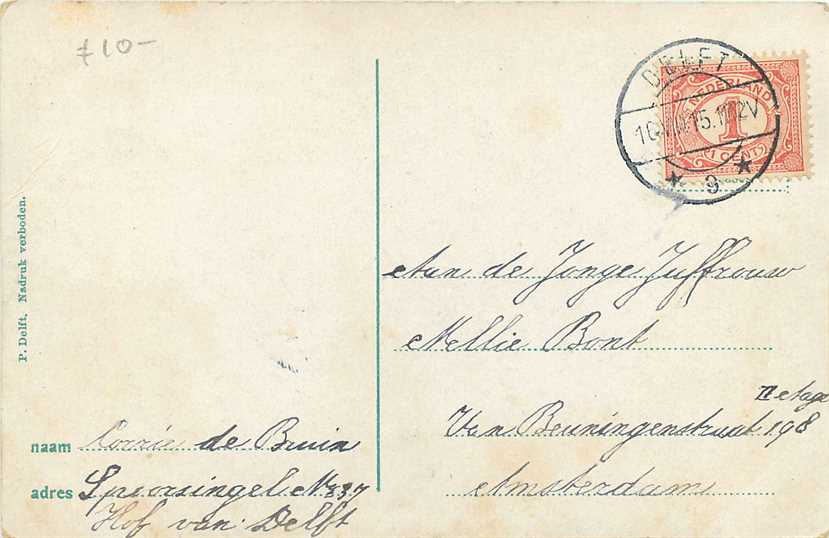 10-
DELFT
NEDERLAND
1
1 CENT
9
Aan de Jonge Juffrouw
Nellie Bont
II etage
Van Beuningenstraat 198
Amsterdam
P. Delft. Nadruk verboden.
naam Corrie de Bruin
adres Spoorsingel No 37
Hof van Delft